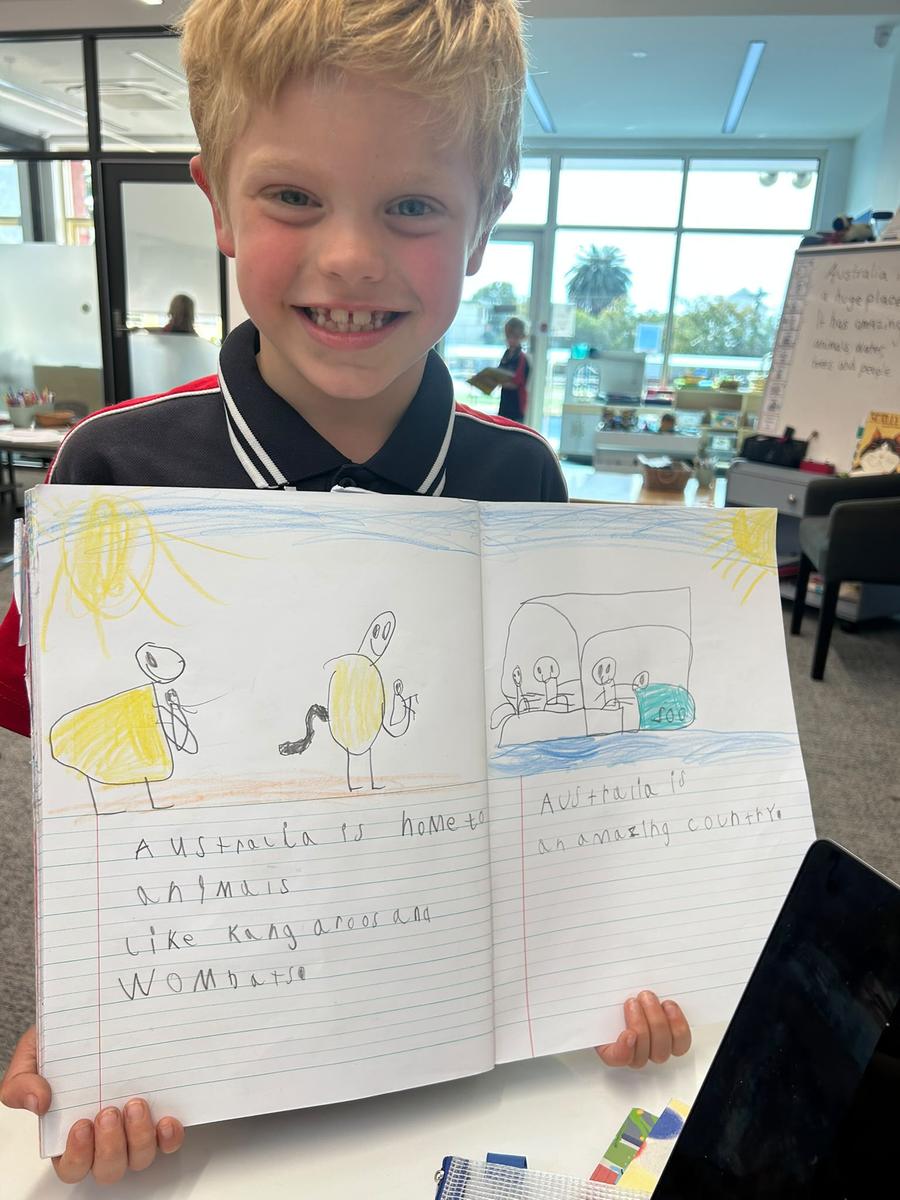 Australia is home to
animals
Like Kangaroos and
Wombats.
Australia is
an amazing country.
soo
Australia is
a huge place
It has amazing
animals, water,
trees and people